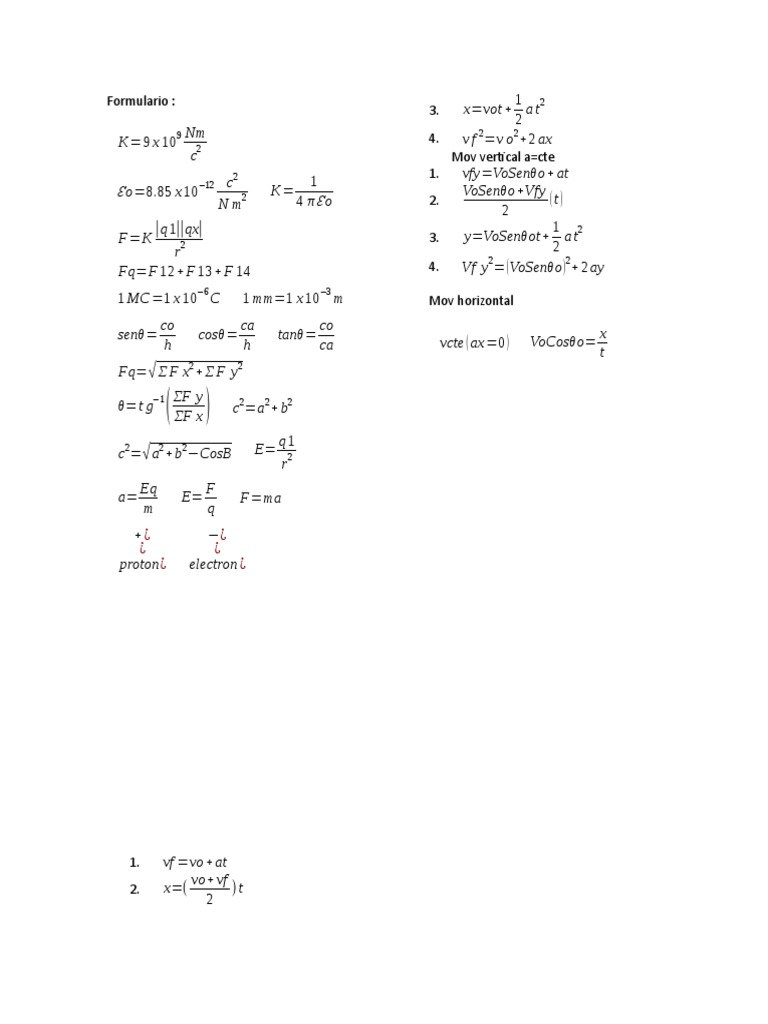 Formulario :
K=9x10⁹ Nm/c²
Ɛo=8.85x10⁻¹² c²/Nm² K=1/4πƐo
F=K |q1||qx|/r²
Fq=F12+F13+F14
1MC=1x10⁻⁶C 1mm=1x10⁻³m
senθ=co/h cosθ=ca/h tanθ=co/ca
Fq=√ΣFx²+ΣFy²
θ=tg⁻¹(ΣFy/ΣFx) c²=a²+b²
c²=√a²+b²−CosB E=q1/r²
a=Eq/m E=F/q F=ma
+¿ −¿
¿ ¿
proton¿ electron¿
1. vf=vo+at
2. x=(vo+vf/2)t
3. x=vot+1/2at²
4. vf²=vo²+2ax
Mov vertical a=cte
1. vfy=VoSenθo+at
2. VoSenθo+Vfy/2(t)
3. y=VoSenθot+1/2at²
4. Vfy²=(VoSenθo)²+2ay
Mov horizontal
vcte(ax=0) VoCosθo=x/t